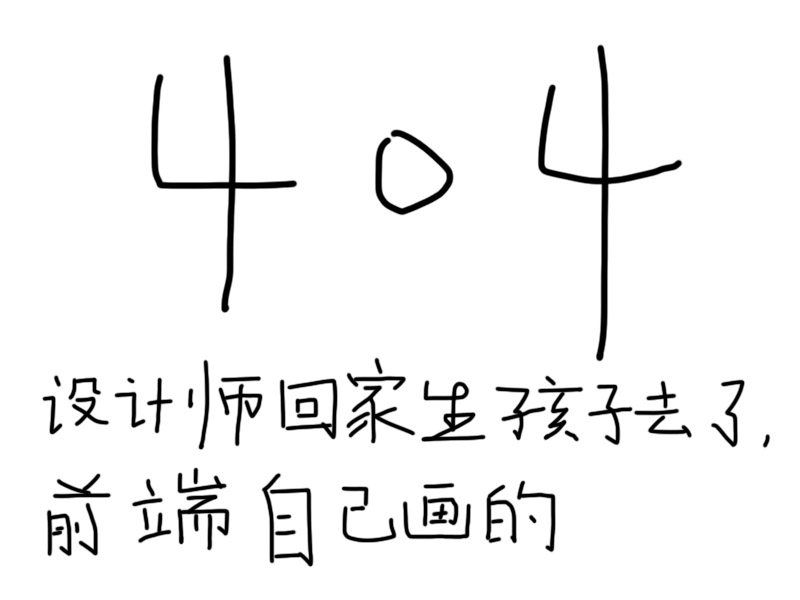 404
设计师回家生孩子去了,
前端自己画的